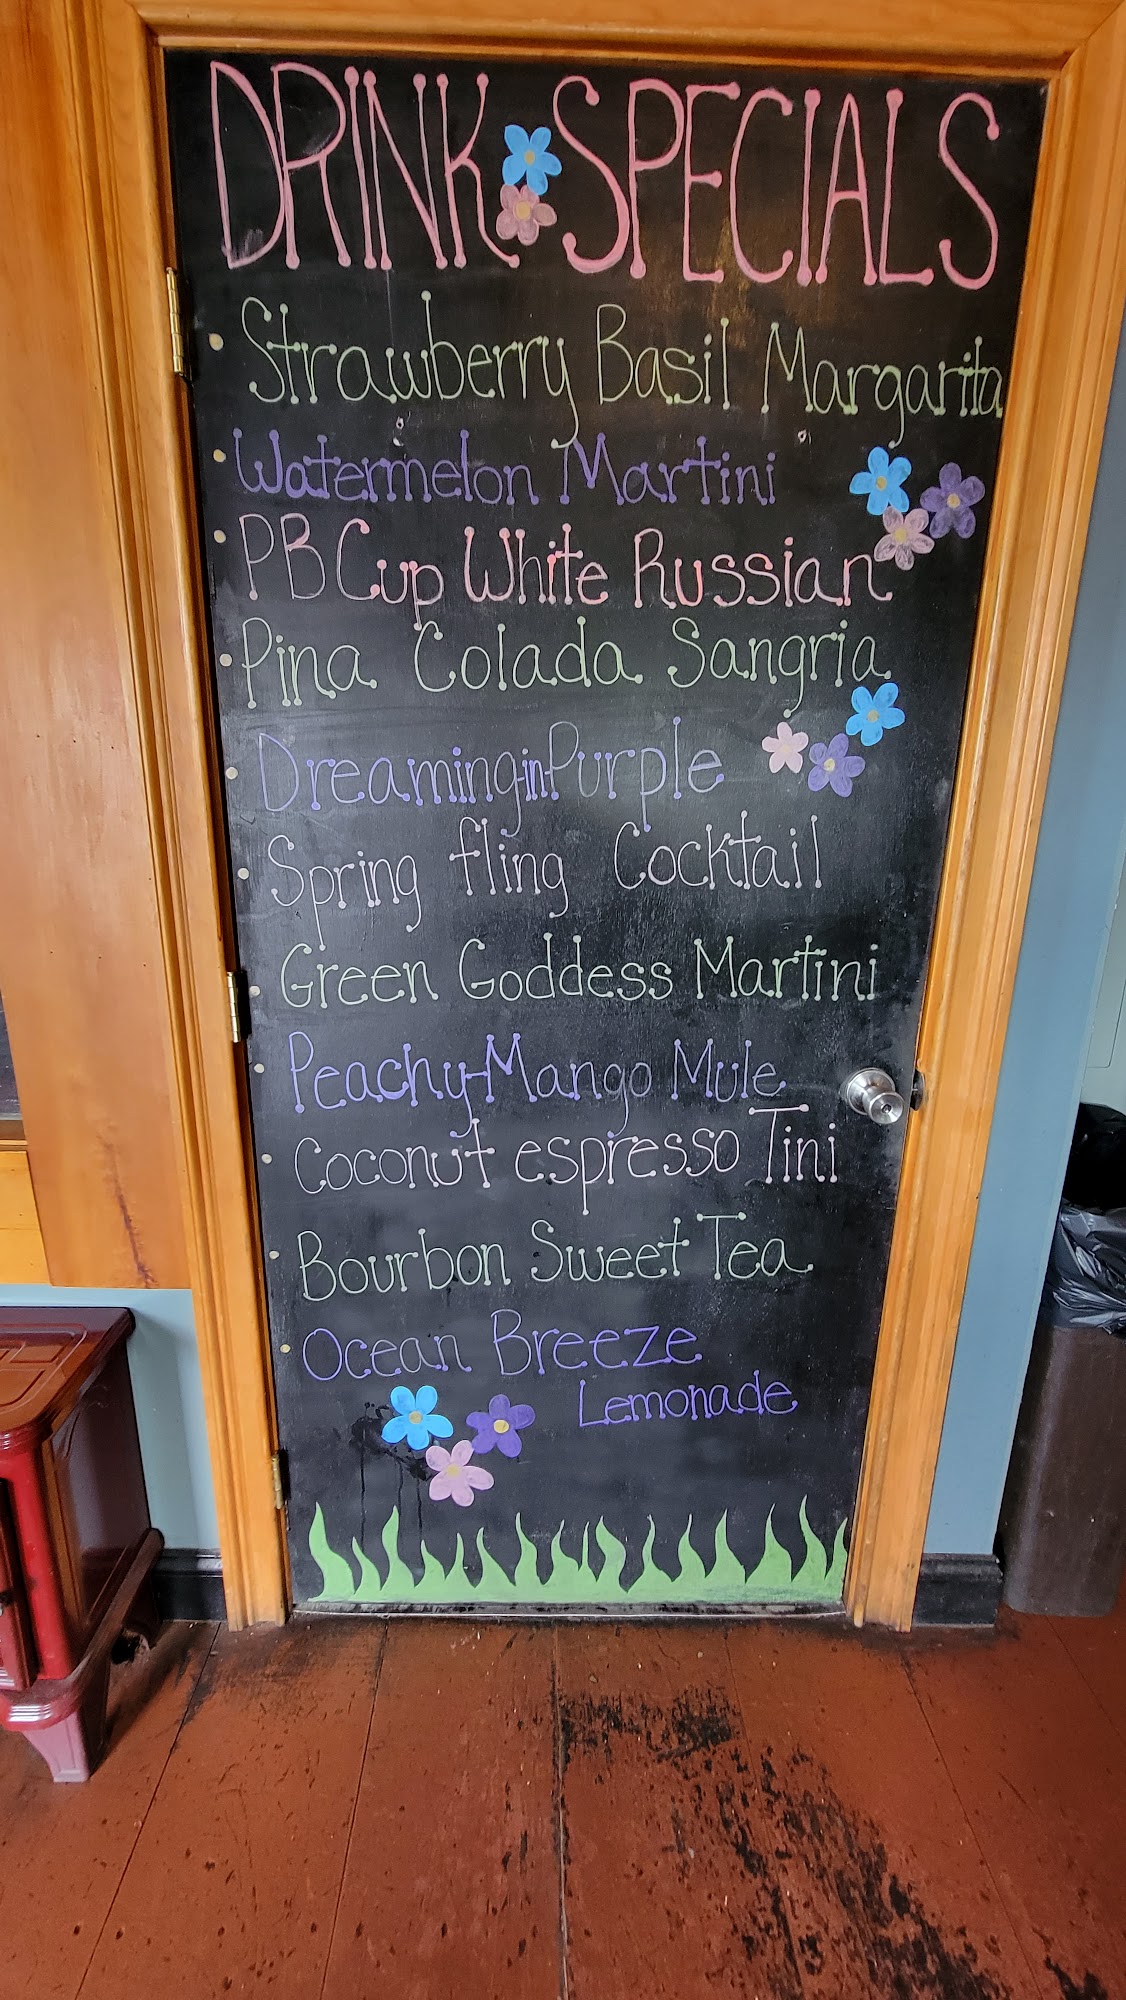 DRINK SPECIALS
Strawberry Basil Margarita
Watermelon Martini
PB Cup White Russian
Pina Colada Sangria
Dreaming-in-Purple
Spring fling Cocktail
Green Goddess Martini
Peachy-Mango Mule
Coconut espresso Tini
Bourbon Sweet Tea
Ocean Breeze
Lemonade